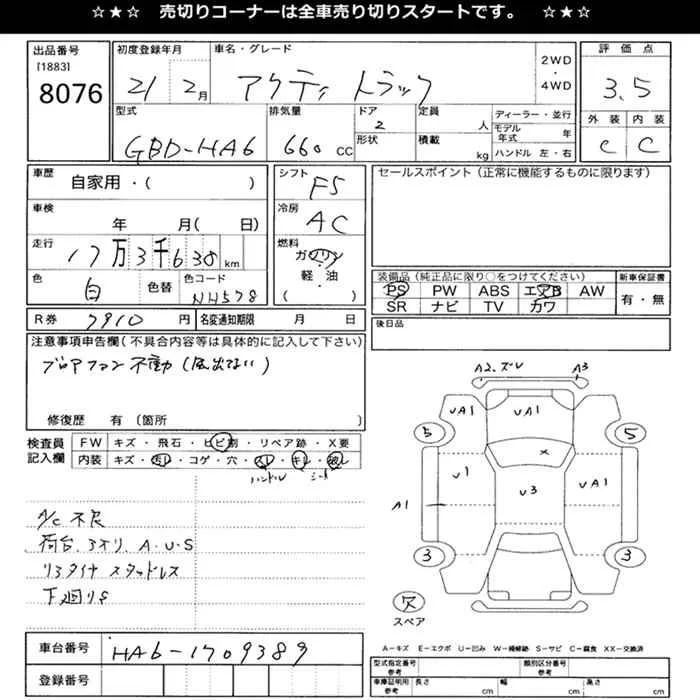 ☆★☆ 売切りコーナーは全車売り切りスタートです。 ☆★☆
出品番号
[1883]
8076
初度登録年月
21 2月
車名・グレード
アクティ トラック
2WD
・
4WD
評価点
3.5
型式
GBD-HA6
排気量
660 CC
ドア
2
形状
定員
人
積載
kg
ディーラー・並行
モデル年式 年
ハンドル 左・右
外装 内装
C C
車歴
自家用・( )
シフト
F5
セールスポイント(正常に機能するものに限ります)
車検
年 月( 日)
冷房
AC
走行
17万3千638km
燃料
ガソリン
軽・油
( )
色
白
色替
色コード
NH578
装備品(純正品に限り○をつけてください)
PS PW ABS エアB AW
SR ナビ TV カワ
新車保証書
有・無
R券 7910 円
名変通知期限 月 日
後日品
注意事項申告欄(不具合内容等は具体的に記入して下さい)
ブロアファン不動(風出ない)
修復歴 有(箇所
検査員
記入欄
FW キズ・飛石・ヒビ割・リペア跡・X要
内装 キズ・汚レ・コゲ・穴・スレ・キレ・破レ
ハンドル シート
A/C不良
荷台、3オリ、A・U・S
リヤタイヤ スタッドレス
下廻りS
A2、ズレ A3
UA1 UA1
5 5
U1 U3 UA1
A1
3 3
欠
スペア
車台番号 HA6-1709389
登録番号
A=キズ E=エクボ U=凹み W=補修跡 S=サビ C=腐食 XX=交換済
型式指定番号
参考
類別区分番号
参考
車庫証明用
参考
長さ cm
幅 cm
高さ cm